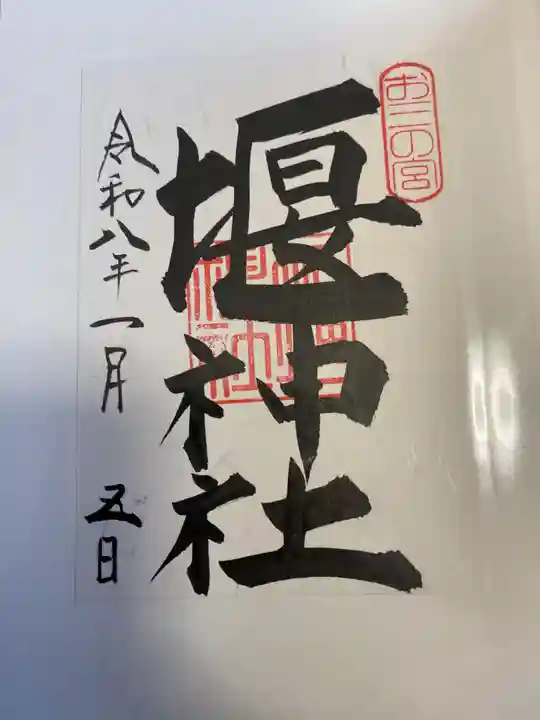 お三の宮
堰神社
令和八年一月 五日